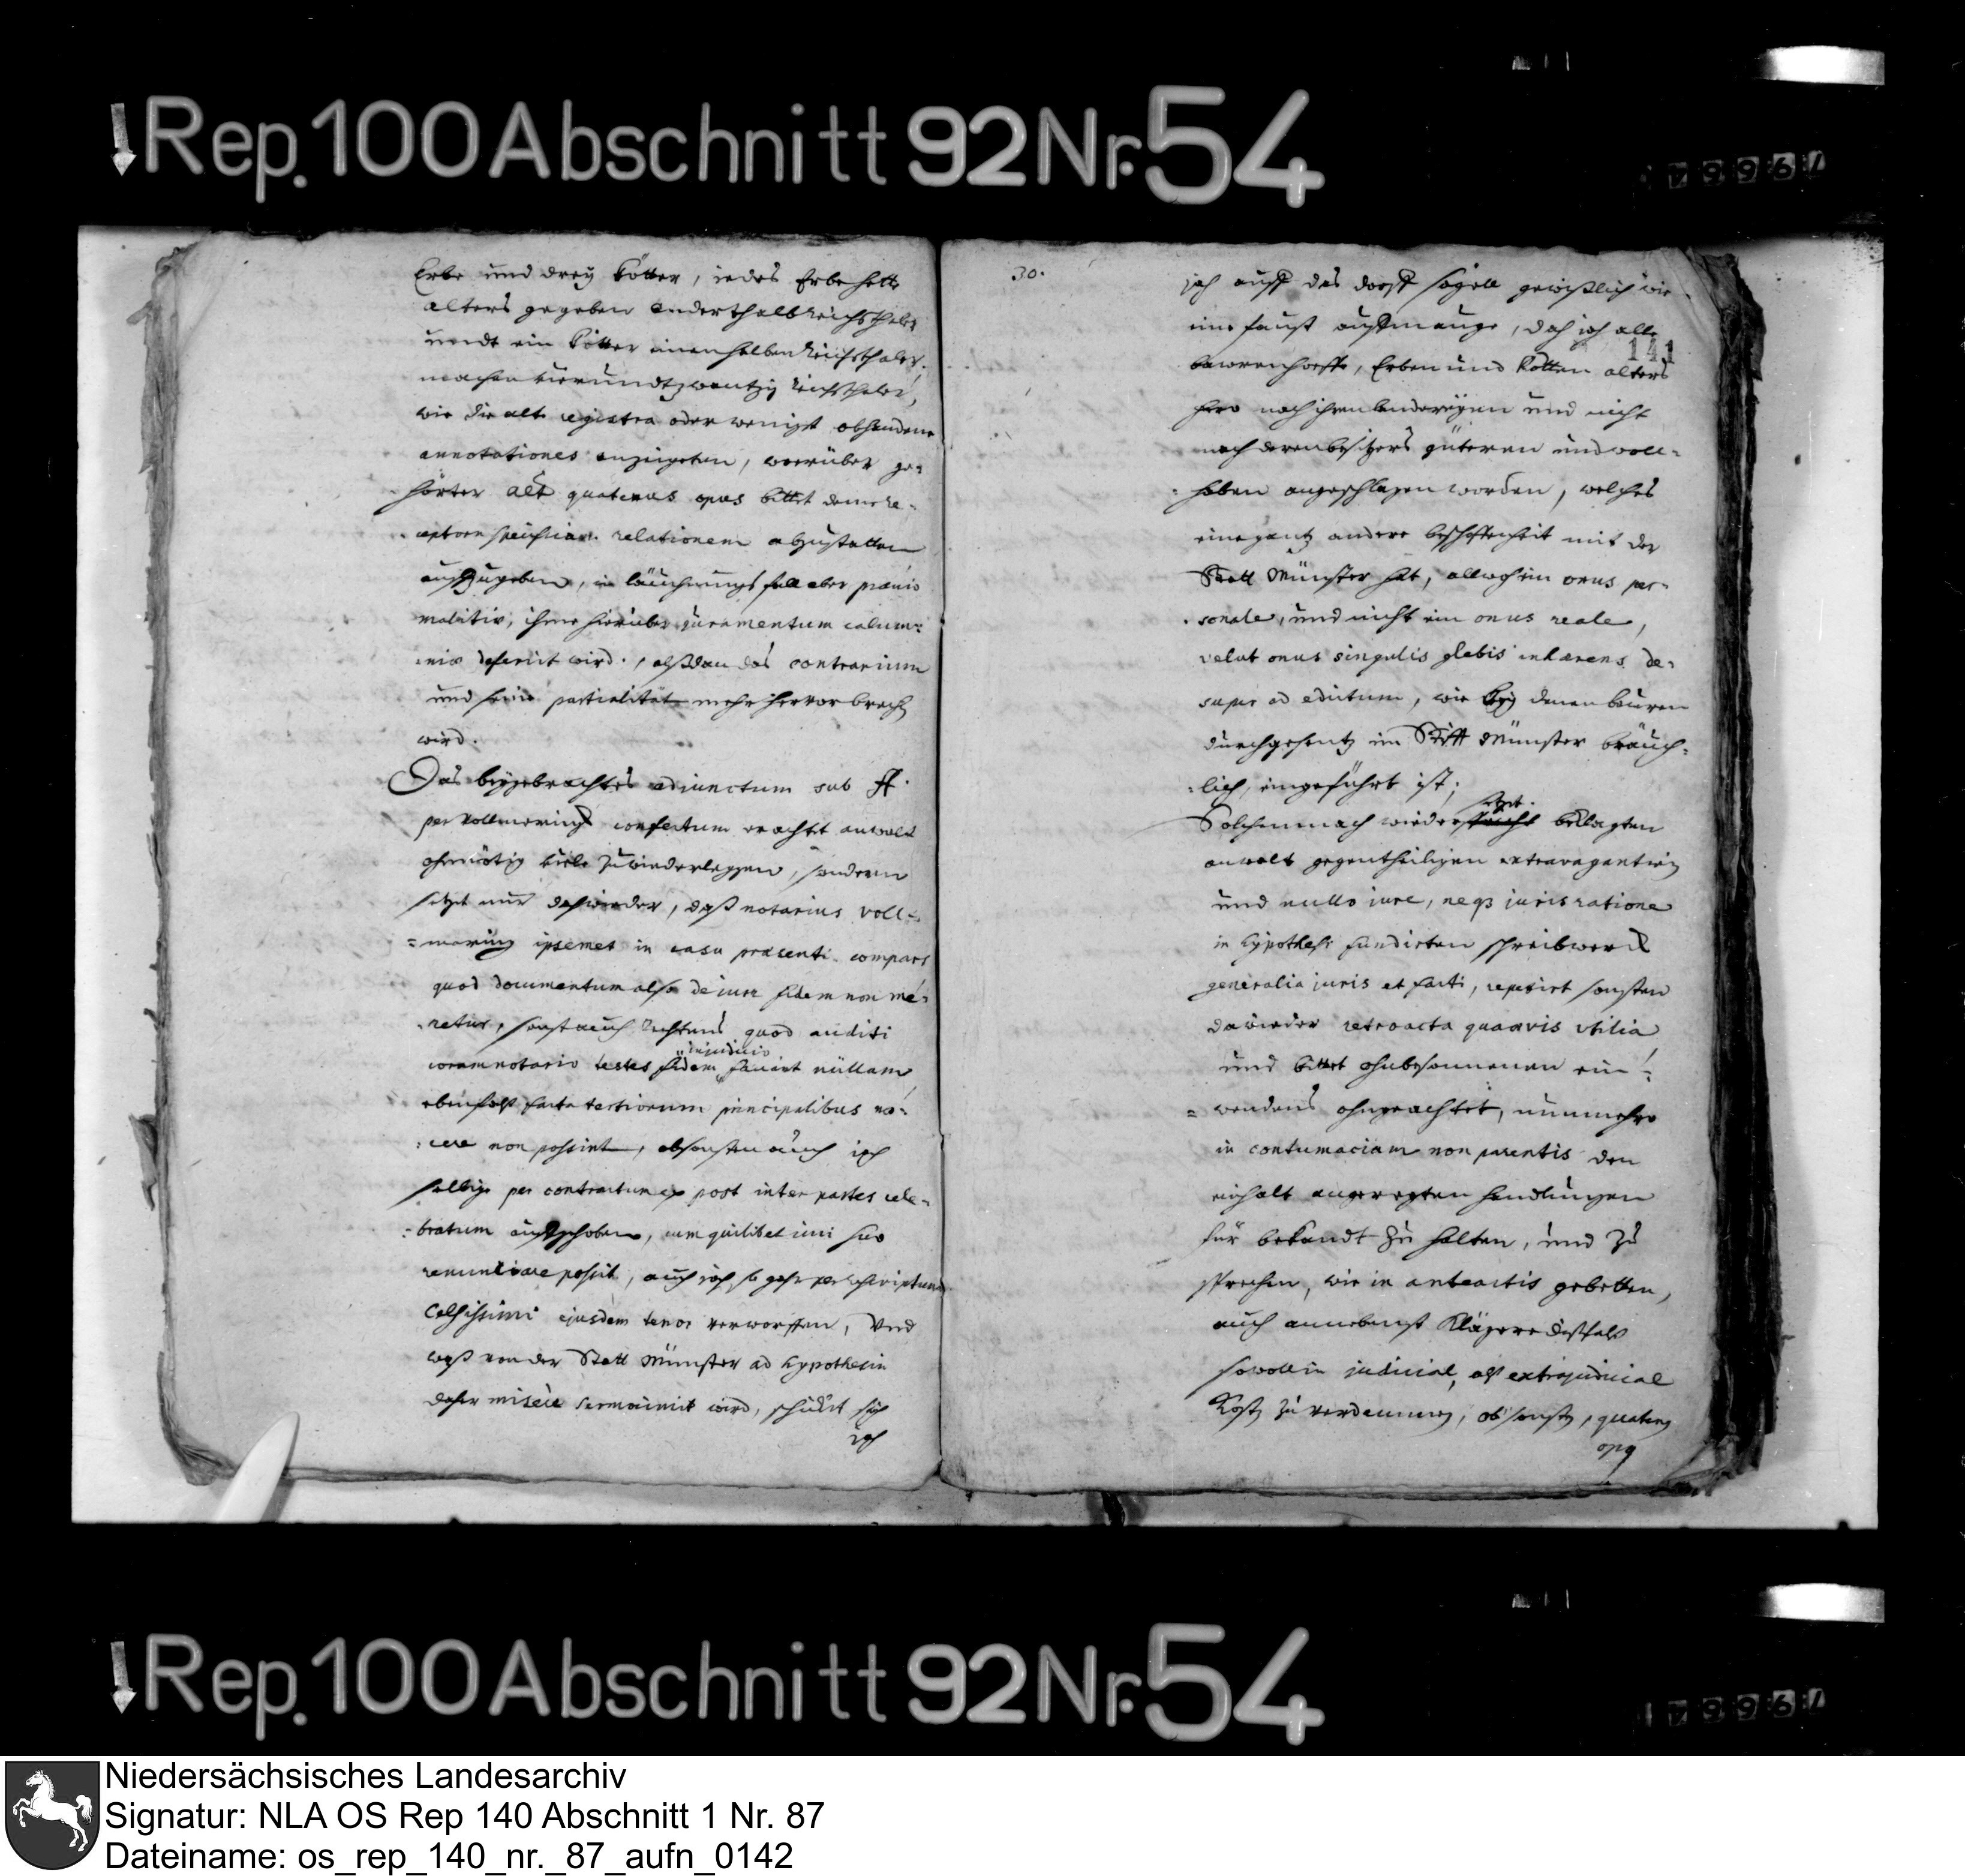 Rep. 100 Abschnitt 92 Nr. 54
Erbe und dreÿ Kötter, iedes Erbe hette
alters gegeben anderthalb reichsthaler
undt ein Kötter einen halben reichsthaler,
machen vierundtzwantzig reichsthaler,
wie die alte registra oder wenigst obhandene
annotationes anzeigeten, worüber ge=
hörter alß quatenus opus bittet deme re=
ceptorn relationem abzustatten
auffzugeben, in laüchnungs fall aber prævio
ihme hierüber juramentum calum=
niæ deferiit wird, alßdan das contrarium
und seine partialitat mehr hervor brech
wird.
Das beÿgebrachtes adiunctum sub ff.
per Vollmerings confectum erachtet anwalt
ohnnötig viele zuwiederleggen, sondern
setzet nur dahwieder, daß notarius Voll=
=mering ipsemet in casu præsenti compars
quod documentum also de iure fidem non me=
retur, sonst auch rechtens quod auditi
coram notario testes fidem in judicio faciant nullam
ebenfalß facta tertiorum principalibus no=
cere non possint, absonsten auch ich
selbige per contractum ex post inter partes cele=
=bratum auffgehoben, cum quilibet iuri suo
renunciare possit, auch ich so gahr per rescriptum
Celsissimi ejusdem tenor verworffen, Und
waß von der Statt Münster ad hypothesin
daher misere sermocinirt wird, schicket sich
ich
30.
ich auff das dorff Sögell gewißlich wie
eine faust auffm auge, dah ich alle
141
bawrenhoeffe, Erben und Kötten alters
hero nach ihren landereÿen und nicht
nach deren besitzers güteren und woll=
=haben angeschlagen worden, welches
eine gantz andere beschaffenheit mit der
Statt Münster hat, allwoh ein onus per=
sonale, und nicht ein onus reale,
velut onus singulis glebis inhærens de=
super ad edictum, wie beÿ denen bauren
durchgehentz im Stifft Münster bräuch=
=lich, eingeführt ist;
setzet
Solchemnach wieder beklagten
anwalt gegentheiligen extravagantien
und nullo jure, neq3 juris ratione
in hypothesi fundirten schreibwerck
generalia juris et facti, repetirt sonsten
dawieder retroacta quævis utilia
und bittet ohnbesonnenen ein=
=wendens ohngeachtet, nunmehro
in contumaciam non parentis den
einhalt angeregten handlungen
für bekandt zu halten, und zu
sprechen, wie in anteactis gebetten,
auch annebenst Klägere deßfalß
sowoll in judicial, alß extrajudicial
Kosten zu verdammen, ob sonsten, quatenus
opq
Rep. 100 Abschnitt 92 Nr. 54
Niedersächsisches Landesarchiv
Signatur: NLA OS Rep 140 Abschnitt 1 Nr. 87
Dateiname: os_rep_140_nr._87_aufn_0142